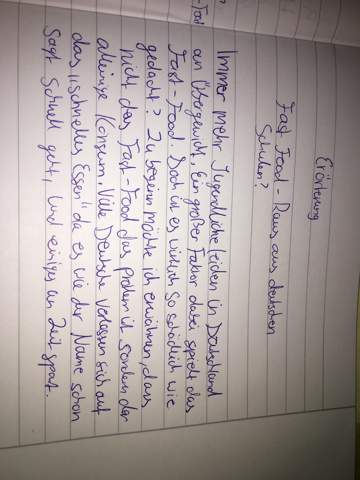 Erörterung
Fast Food - Raus aus deutschen
Schulen?
Immer mehr Jugendliche leiden in Deutschland
an Übergewicht. Ein großer Faktor dabei spielt das
Fast-Food. Doch ist es wirklich so schädlich wie
gedacht? Zu beginn möchte ich erwähnen, dass
nicht das Fast Food das problem ist sondern der
alleinige Konsum. Viele Deutsche verlassen sich auf
das "schnelles Essen" da es wie der Name schon
sagt schnell geht, und einiges an Zeit spart.